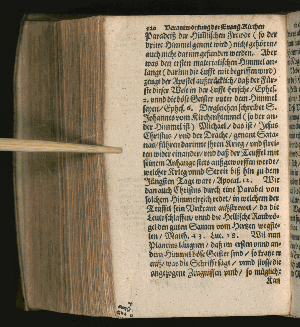 520 Verantwortung der Evang: Kirchen
Paradeiß der Hüllischen Frewde (so der
dritte Himmel genent wird) nicht gehören/
auch nicht darinn gefunden werden. Aber
was den ersten materialischen Himmel an-
lange (darinn die Luffte mit begriffen wird)
zeuget der Apostel außtrücklich/ daß der Für-
ste dieser Welt in der Lufft hersche/ Ephes.
2. vnnd die böse Geister vnter dem Himmel
seyen/ Ephes. 6. Dergleichen schreibet S.
Johannes vom Kirchenhimmel (so der an-
der Himmel ist) Michael/ das ist/ Jesus
Christus/ vnd der Drache/ genant Sata-
nas/ führen darinne ihren Krieg/ vnd strei-
ten wider einander/ vnd daß der Teuffel mit
seinem Anhange stets außgeworffen werde/
welcher Krieg vnnd Streit biß hin zu dem
Jüngsten Tage wäre/ Apocal. 12. Wie
dan auch Christus durch eine Parabel von
solchem Himmelreich redet/ in welchem der
Teuffel sein Vnkraut außstrewet/ da die
Leute schlaffen/ vnnd die Hellische Raubvö-
gel den guten Samen vom Hertzen wegste-
len/ Matth. 13. Luc. 18. Wil nun
Plancius läugnen/ daß im ersten vnnd an-
dern Himmel böse Geister sind/ so
muß/ was die Schrifft sagt/ vnnd
angezogene Zeugnissen sind/ so müglich:
Kan